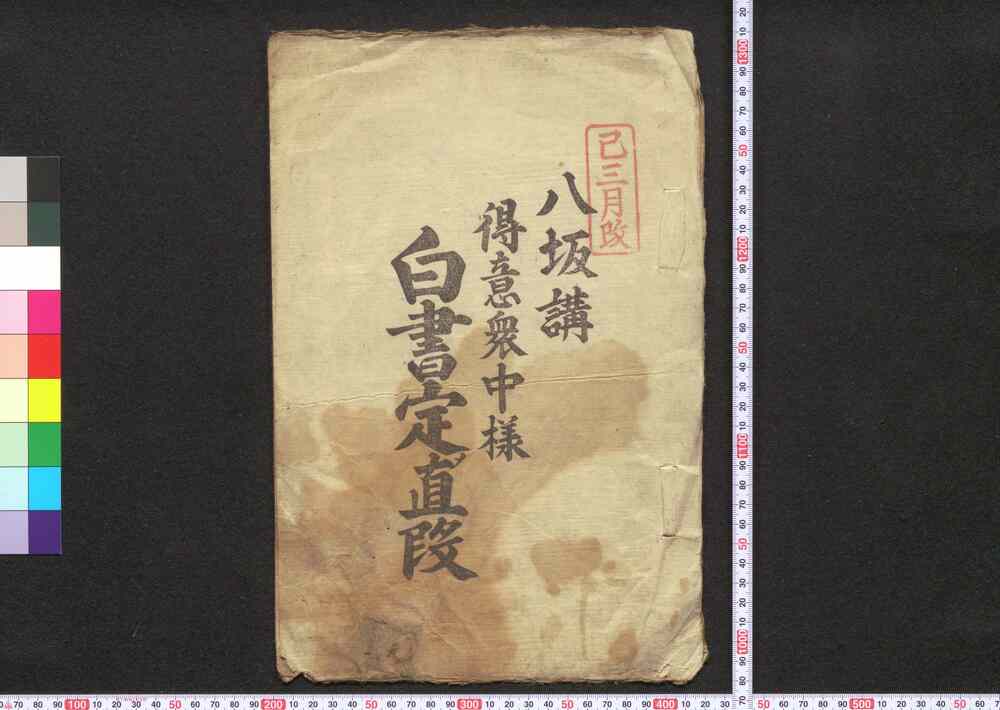 己三月改
八坂講
得意衆中様
白書定直段